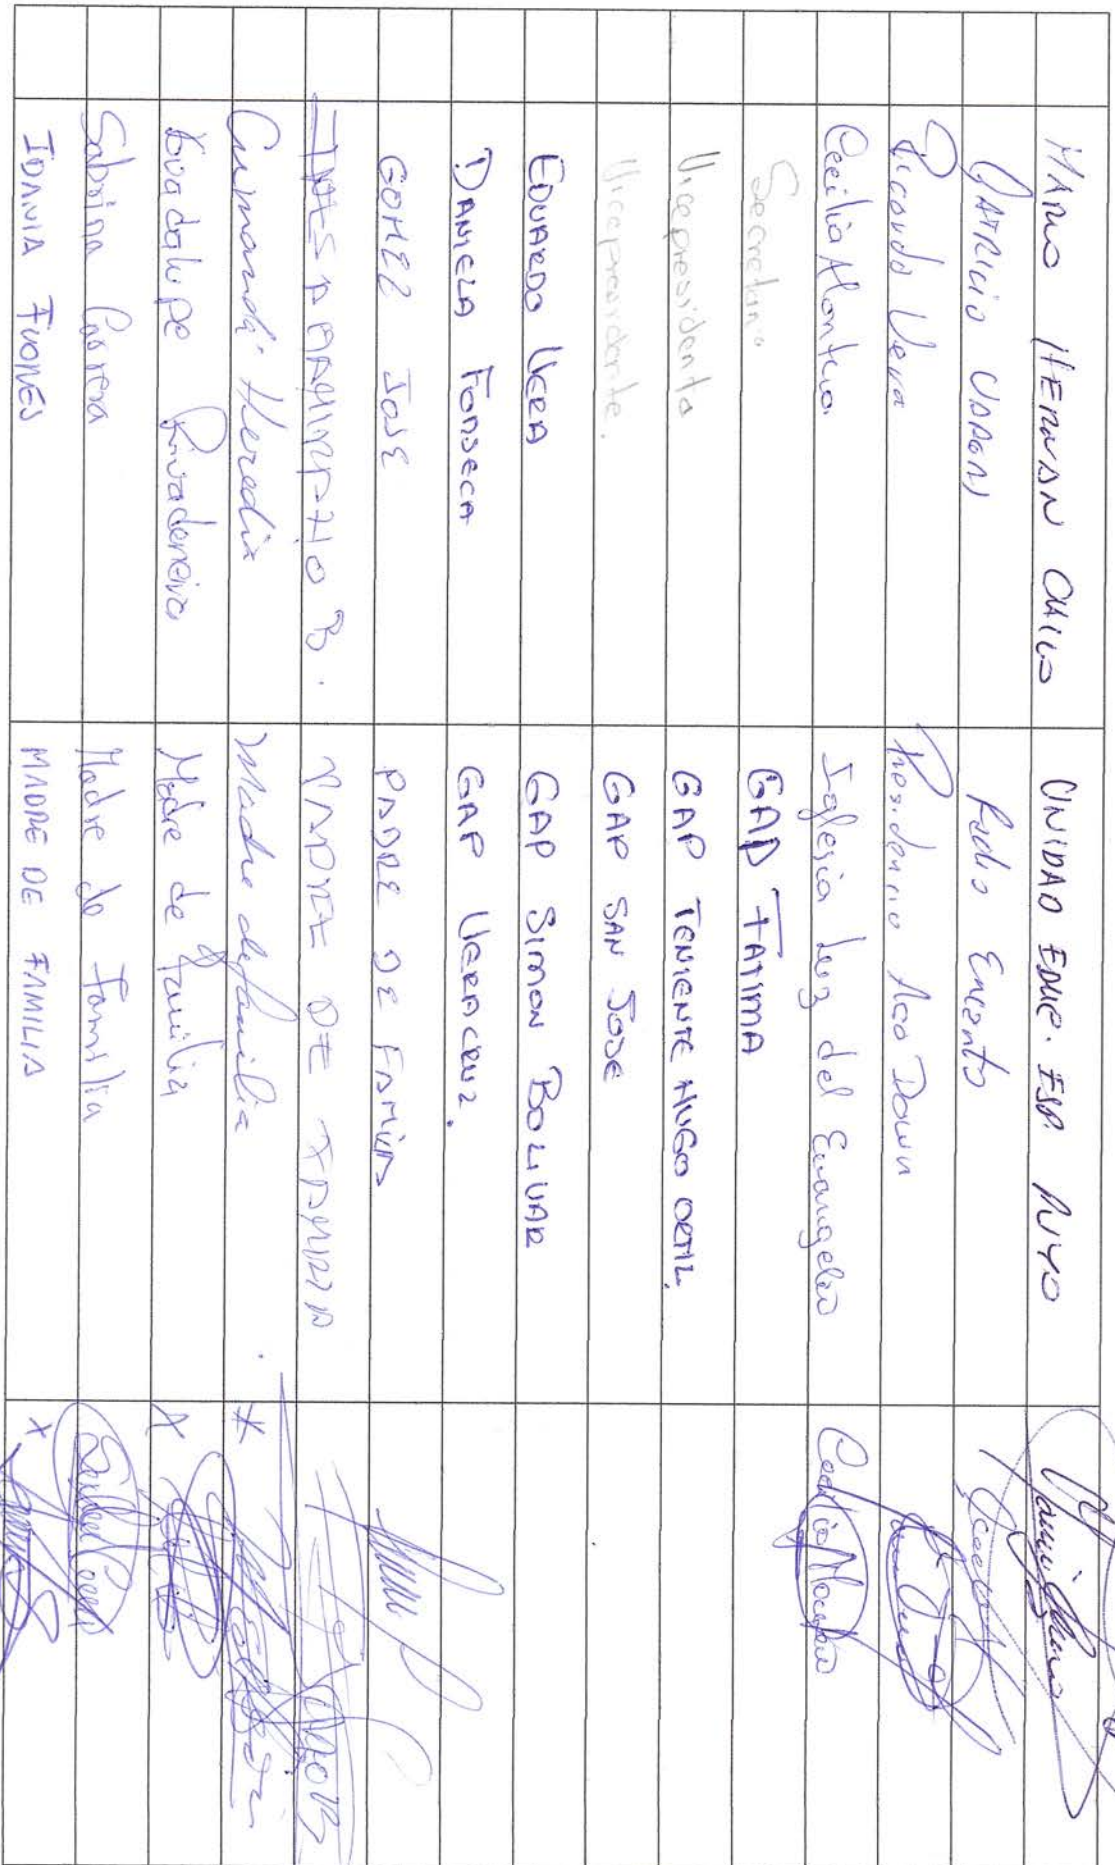 MARIO HERNAN CHILO UNIDAD EDUC. ESP. PUYO
PATRICIO UDAONI Radio Encanto
Ricardo Vera Presidencia Aso Down
Cecilia Montero Iglesia Luz del Evangelio Cecilia Montero
Secretario GAD FATIMA
Vicepresidenta GAP TENIENTE HUGO ORTIZ.
Vicepresidente. GAP SAN JOSE
EDUARDO VERA GAP SIMON BOLIVAR
DANIELA FONSECA GAP VERACRUZ.
GOMEZ JOSE PADRE DE FAMILIA
PADRE DE FAMILIA
Cumandá Heredia Madre de familia
Guadalupe Rivadeneira Madre de Familia
Sabrina Correa Madre de Familia
IDANIA FUONES MADRE DE FAMILIA